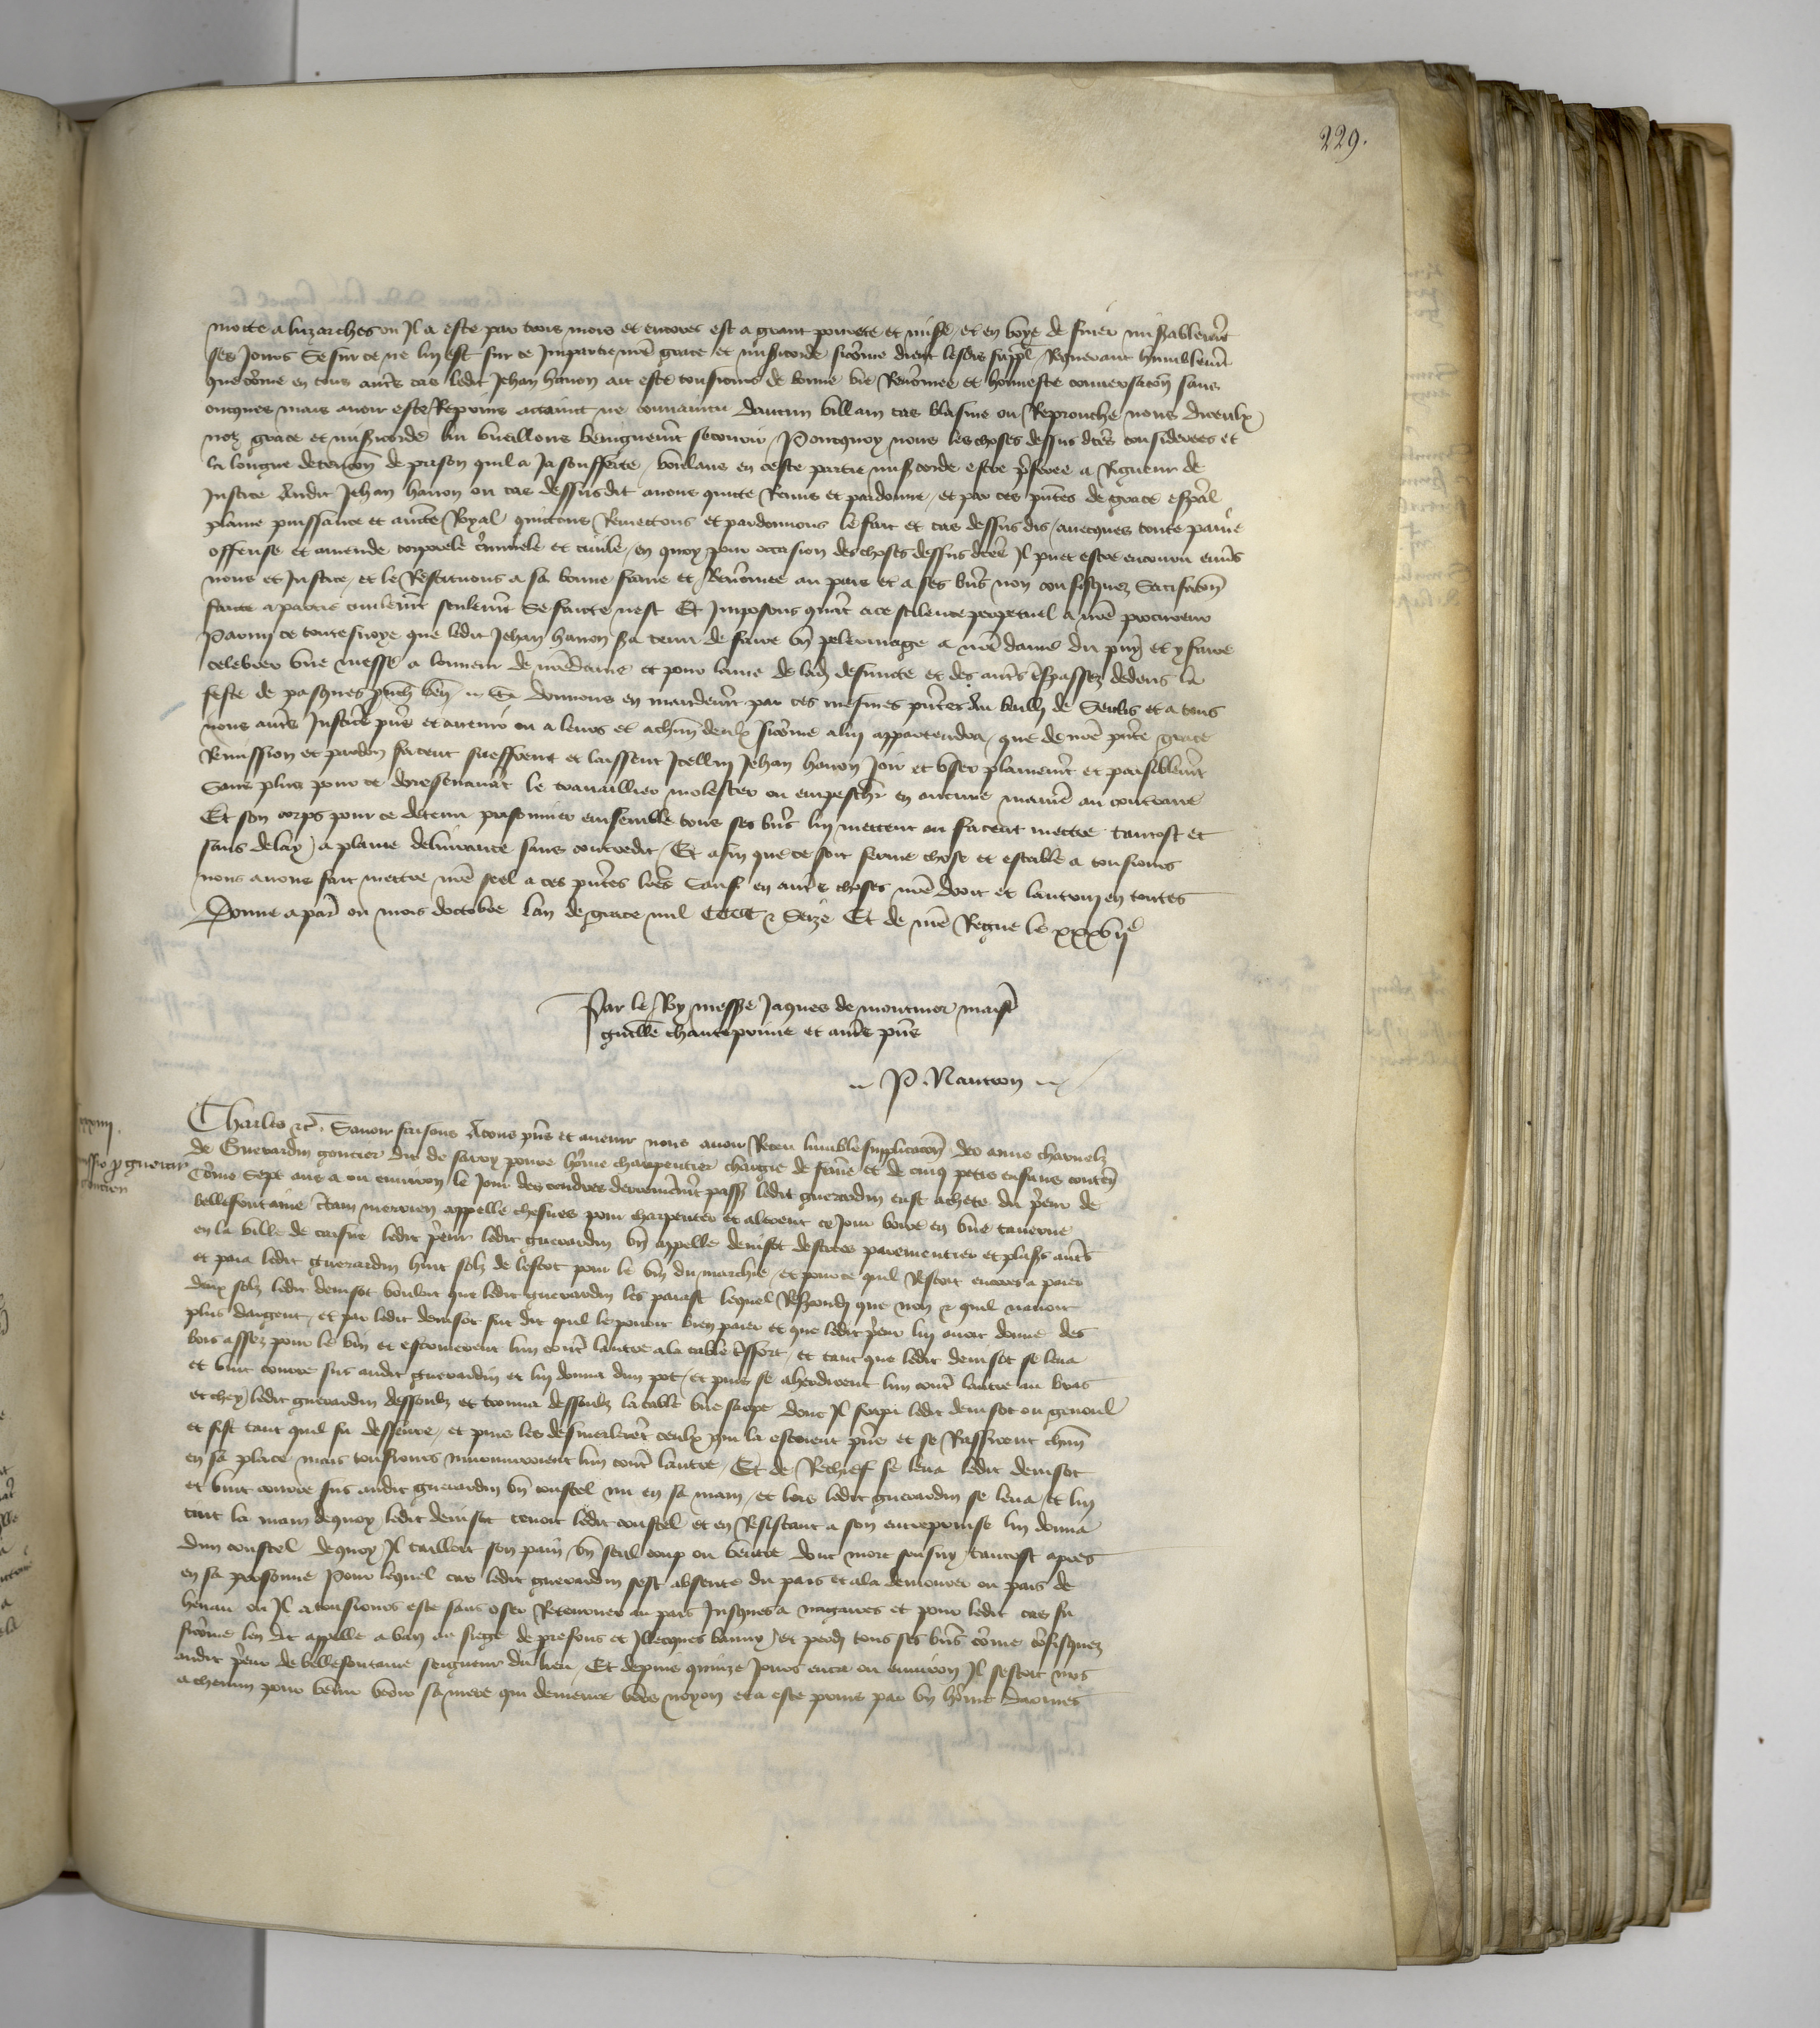 229.
motte a luzarches ou Il a este par trois mois et encores est a grant pourete et misere et en voye de finer miserablemt
ses Jours Se sur ce ne luy est sur ce Impartie nre grace et misericorde sicome dient lesdis suppl Requerant humblemt
que come en tous autres cas ledit Jehan hanon ait este tousiours de bonne vie Renomee et honneste conuersacon sans
oncques mais auoir este Reprins attaint ne conuaincu daucun villain cas blasme ou Reprouche nous diceulx
noz grace et misericorde lui vueillons benignemt secourir Pourquoy nous les choses dessus dctes considerees et
la longue detencon de prison quil a Ja soufferte voulans en ceste partie misericorde estre preferee a Rigueur de
Justice Audit Jehan hanon ou cas dessusdit auons quitte Remis et pardonne et par ces pntes de grace especal
plaine puissance et aucte Royal quittons Remettons et pardonnons le fait et cas dessus dis auecques toute paine
offense et amende corporele criminele et ciuile en quoy pour occasion des choses dessus dctes Il puet estre encouru enuers
nous et Justice et le Restituons a sa bonne fame et Renomee au pais et a ses biens non confisquez Satisfacon
faicte a partie ciuilemt seulemt Se faicte nest Et Imposons quant a ce scilence perpetuel a nre procureur
Parmy ce toutesuoye que ledit Jehan hanon sera tenu de faire vn pelerinage a nre dame du puy et y faire
celebrer vne messe a lonneur de nre dame et pour lame de lad defuncte et des autres trespassez dedens la
feste de pasques prouch ven Si donnons en mandemt par ces mesmes pntes Au bailli de Senlis et a tous
nous autres Justiciers pns et auenir ou a leurs et a chun deulx sicome a luy appartendra que de nre pnte grace
Remission et pardon facent sueffrent et laissent Icelluy Jehan hanon Joir et vser plainemt et paisiblemt
Sans plus pour ce doresenauant le trauaillier molester ou empescher en aucune maniere au contraire
Et son corps pour ce detenu prisonnier ensemble tous ses biens luy mettent ou facent mettre tantost et
sans delay a plaine deliurance sans contredit Et afin que ce soit ferme chose et estable a tousiours
nous auons fait mettre nre seel a ces pntes lres Sauf en autres choses nre droit et lautruy en toutes
Donne a paris ou mois doctobre lan de grace mil CCCC & Seize Et de nre Regne le xxxvije
Par le Roy messre Jaques de montmor maistre
guille chanteprime et autres pns
P. Nantron
Charles &c Sauoir faisons A tous pns et auenir nous auoir Receu lumble supplicacon des amis charnelz
de Guerardin gontier dit de sauoy poure home charpentier chargie de feme et de cinq petis enfans conten
Come Sept ans a ou enuiron le Jour des cendres derrenieremt passe ledit guerardin eust achete du prieur de
bellefontaine certain merrien appelle chesnes pour charpenter et alerent ce Jour boire en vne tauerne
en la ville de ledit prieur ledit guerardin vn appelle denisot destrees parementier et plusrs autres
et paia ledit guerardin huit solz de lescot pour le vin du marchie et pource quil Restoit encores a paier
deux solz ledit denisot vouloit que ledit guerardin les paiast lequel Respondi que non & quil nauoit
plus dargent et par ledit denisot fut dit quil le pouoit bien paier et que ledit prieur luy auoit donne des
bois assez pour le vin et estriuerent lun contre lautre a la table tresfort et tant que ledit denisot se leua
et vint courre sus audit guerardin et luy donna dun pot et puis se aherdirent lun contre lautre au bras
et chey ledit guerardin dessoubz et trouua dessoubz la table vne sarpe dont Il feri ledit denisot ou genoul
et fist tant quil fu desseure et puis les desmelerent ceulx qui la estoient pns et se Rassirent chun
en sa place mais tousiours murmuroient lun contre lautre Et de Rechief se leua ledit denisot
et vint courre sus audit guerardin vn coustel nu en sa main et lors ledit guerardin se leua et luy
tint la main dequoy ledit denisot tenoit ledit coustel et en Resistant a son entreprinse luy donna
dun coustel dequoy Il tailloit son pain vn seul coup ou ventre dont mort sensuy tantost apres
en sa personne Pour lequel cas ledit guerardin sest absente du pais et ala demourer ou pais de
henau ou Il a tousiours este sans oser Retourner au pais Jusques a nagaires et pour ledit cas fu
sicome len dit appelle a ban au siege de presons et Illecques banny et perdi tous ses biens come cofisquez
audit prieur de bellefontaine seigneur du lieu Et depuis quinze Jours enca ou enuiron Il sestoit mis
a chemin pour venir veoir sa mere qui demeure vers noyon et a este prins par vn home darmes